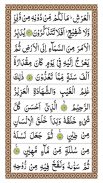 الْعَرْشِ ؕ مَا لَكُمْ مِّنْ دُوْنِهٖ مِنْ وَّلِيٍّ
وَّلَا شَفِيْعٍ ؕ اَفَلَا تَتَذَكَّرُوْنَ يُدَبِّرُ
الْاَمْرَ مِنَ السَّمَآءِ اِلَى الْاَرْضِ ثُمَّ
يَعْرُجُ اِلَيْهِ فِيْ يَوْمٍ كَانَ مِقْدَارُهٗۤ
اَلْفَ سَنَةٍ مِّمَّا تَعُدُّوْنَ ذٰلِكَ
عٰلِمُ الْغَيْبِ وَالشَّهَادَةِ الْعَزِيْزُ
الرَّحِيْمُ الَّذِيْۤ اَحْسَنَ كُلَّ
شَيْءٍ خَلَقَهٗ وَبَدَاَ خَلْقَ الْاِنْسَانِ
مِنْ طِيْنٍ ثُمَّ جَعَلَ نَسْلَهٗ
مِنْ سُلٰلَةٍ مِّنْ مَّآءٍ مَّهِيْنٍ
ثُمَّ سَوّٰىهُ وَنَفَخَ فِيْهِ مِنْ رُّوْحِهٖ